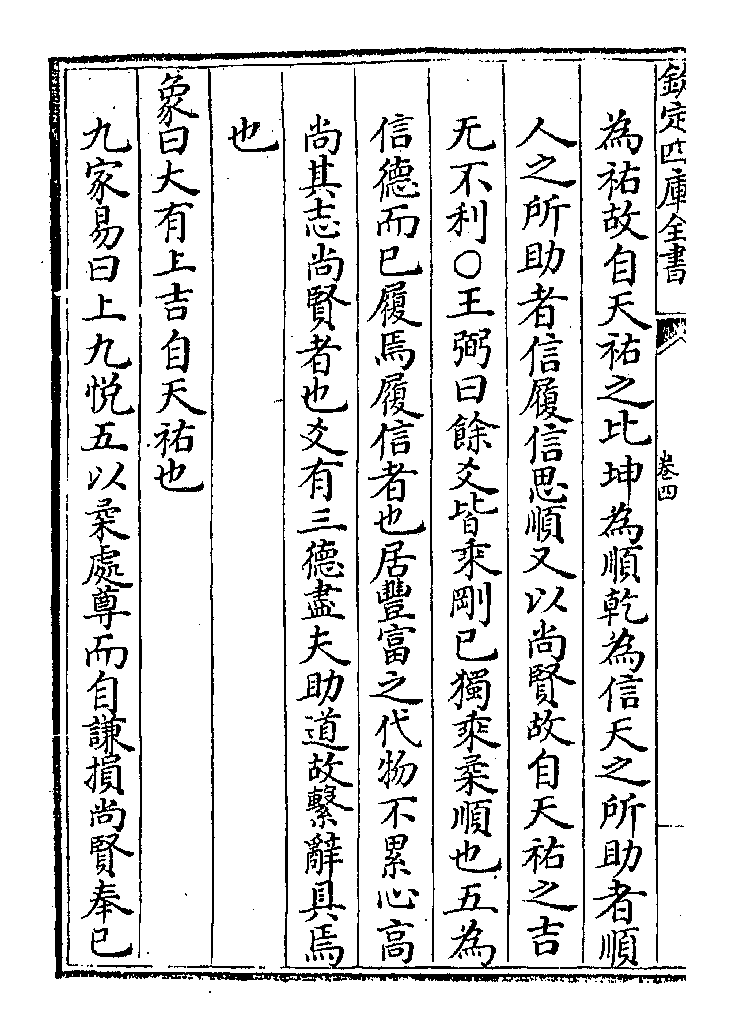 欽定四庫全書
卷四
為祐故自天祐之比坤為順乾為信天之所助者順
人之所助者信履信思順又以尚賢故自天祐之吉
无不利○王弼曰餘爻皆乘剛已獨乘柔順也五為
信德而已履焉履信者也居豐富之代物不累心高
尚其志尚賢者也爻有三德盡夫助道故繫辭具焉
也
象曰大有上吉自天祐也
九家易曰上九悅五以柔處尊而自謙損尚賢奉已